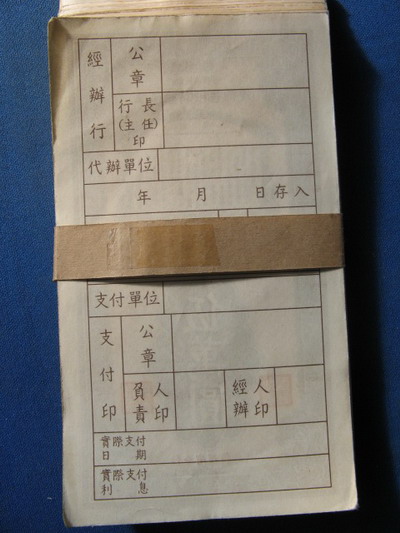 經辦行
公章
行長
(主任)
印
代辦單位
年 月 日存入
支付單位
支付印
公章
負責人印
經辦人印
實際支付
日期
實際支付
利息